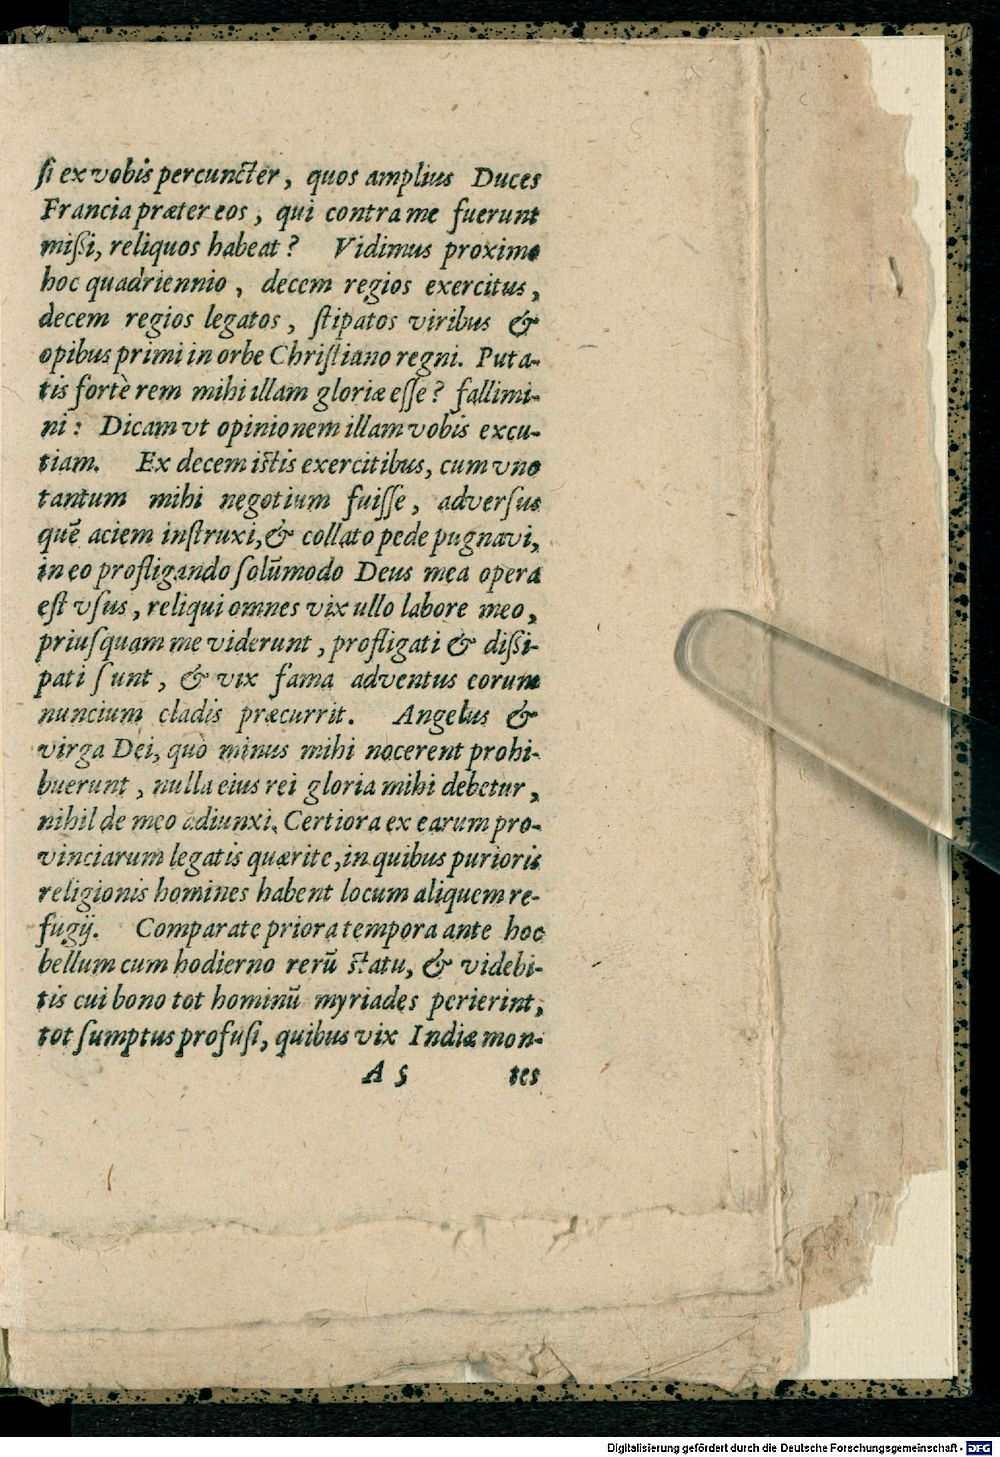 ſi ex vobis percuncter, quos amplius Duces
Francia præter eos, qui contra me fuerunt
miſsi, reliquos habeat? Vidimus proximo
hoc quadriennio, decem regios exercitus,
decem regios legatos, ſtipatos viribus &
opibus primi in orbe Chriſtiano regni. Puta-
tis fortè rem mihi illam gloriæ eſſe? fallimi-
ni: Dicam vt opinionem illam vobis excu-
tiam. Ex decem istis exercitibus, cum vno
tantum mihi negotium fuiſſe, adverſus
quē aciem inſtruxi, & collato pede pugnavi,
in eo profligando ſolūmodo Deus mea opera
eſt vſus, reliqui omnes vix ullo labore meo,
priuſquam me viderunt, profligati & diſsi-
pati ſunt, & vix fama adventus eorum
nuncium cladis præcurrit. Angelus &
virga Dei, quò minus mihi nocerent prohi-
buerunt, nulla eius rei gloria mihi debetur,
nihil de meo adiunxi. Certiora ex earum pro-
vinciarum legatis quærite, in quibus purioris
religionis homines habent locum aliquem re-
fugij. Comparate priora tempora ante hoc
bellum cum hodierno rerū statu, & videbi-
tis cui bono tot hominū myriades perierint,
tot ſumptus profuſi, quibus vix Indiæ mon-
A 5 tes
Digitalisierung gefördert durch die Deutsche Forschungsgemeinschaft - DFG